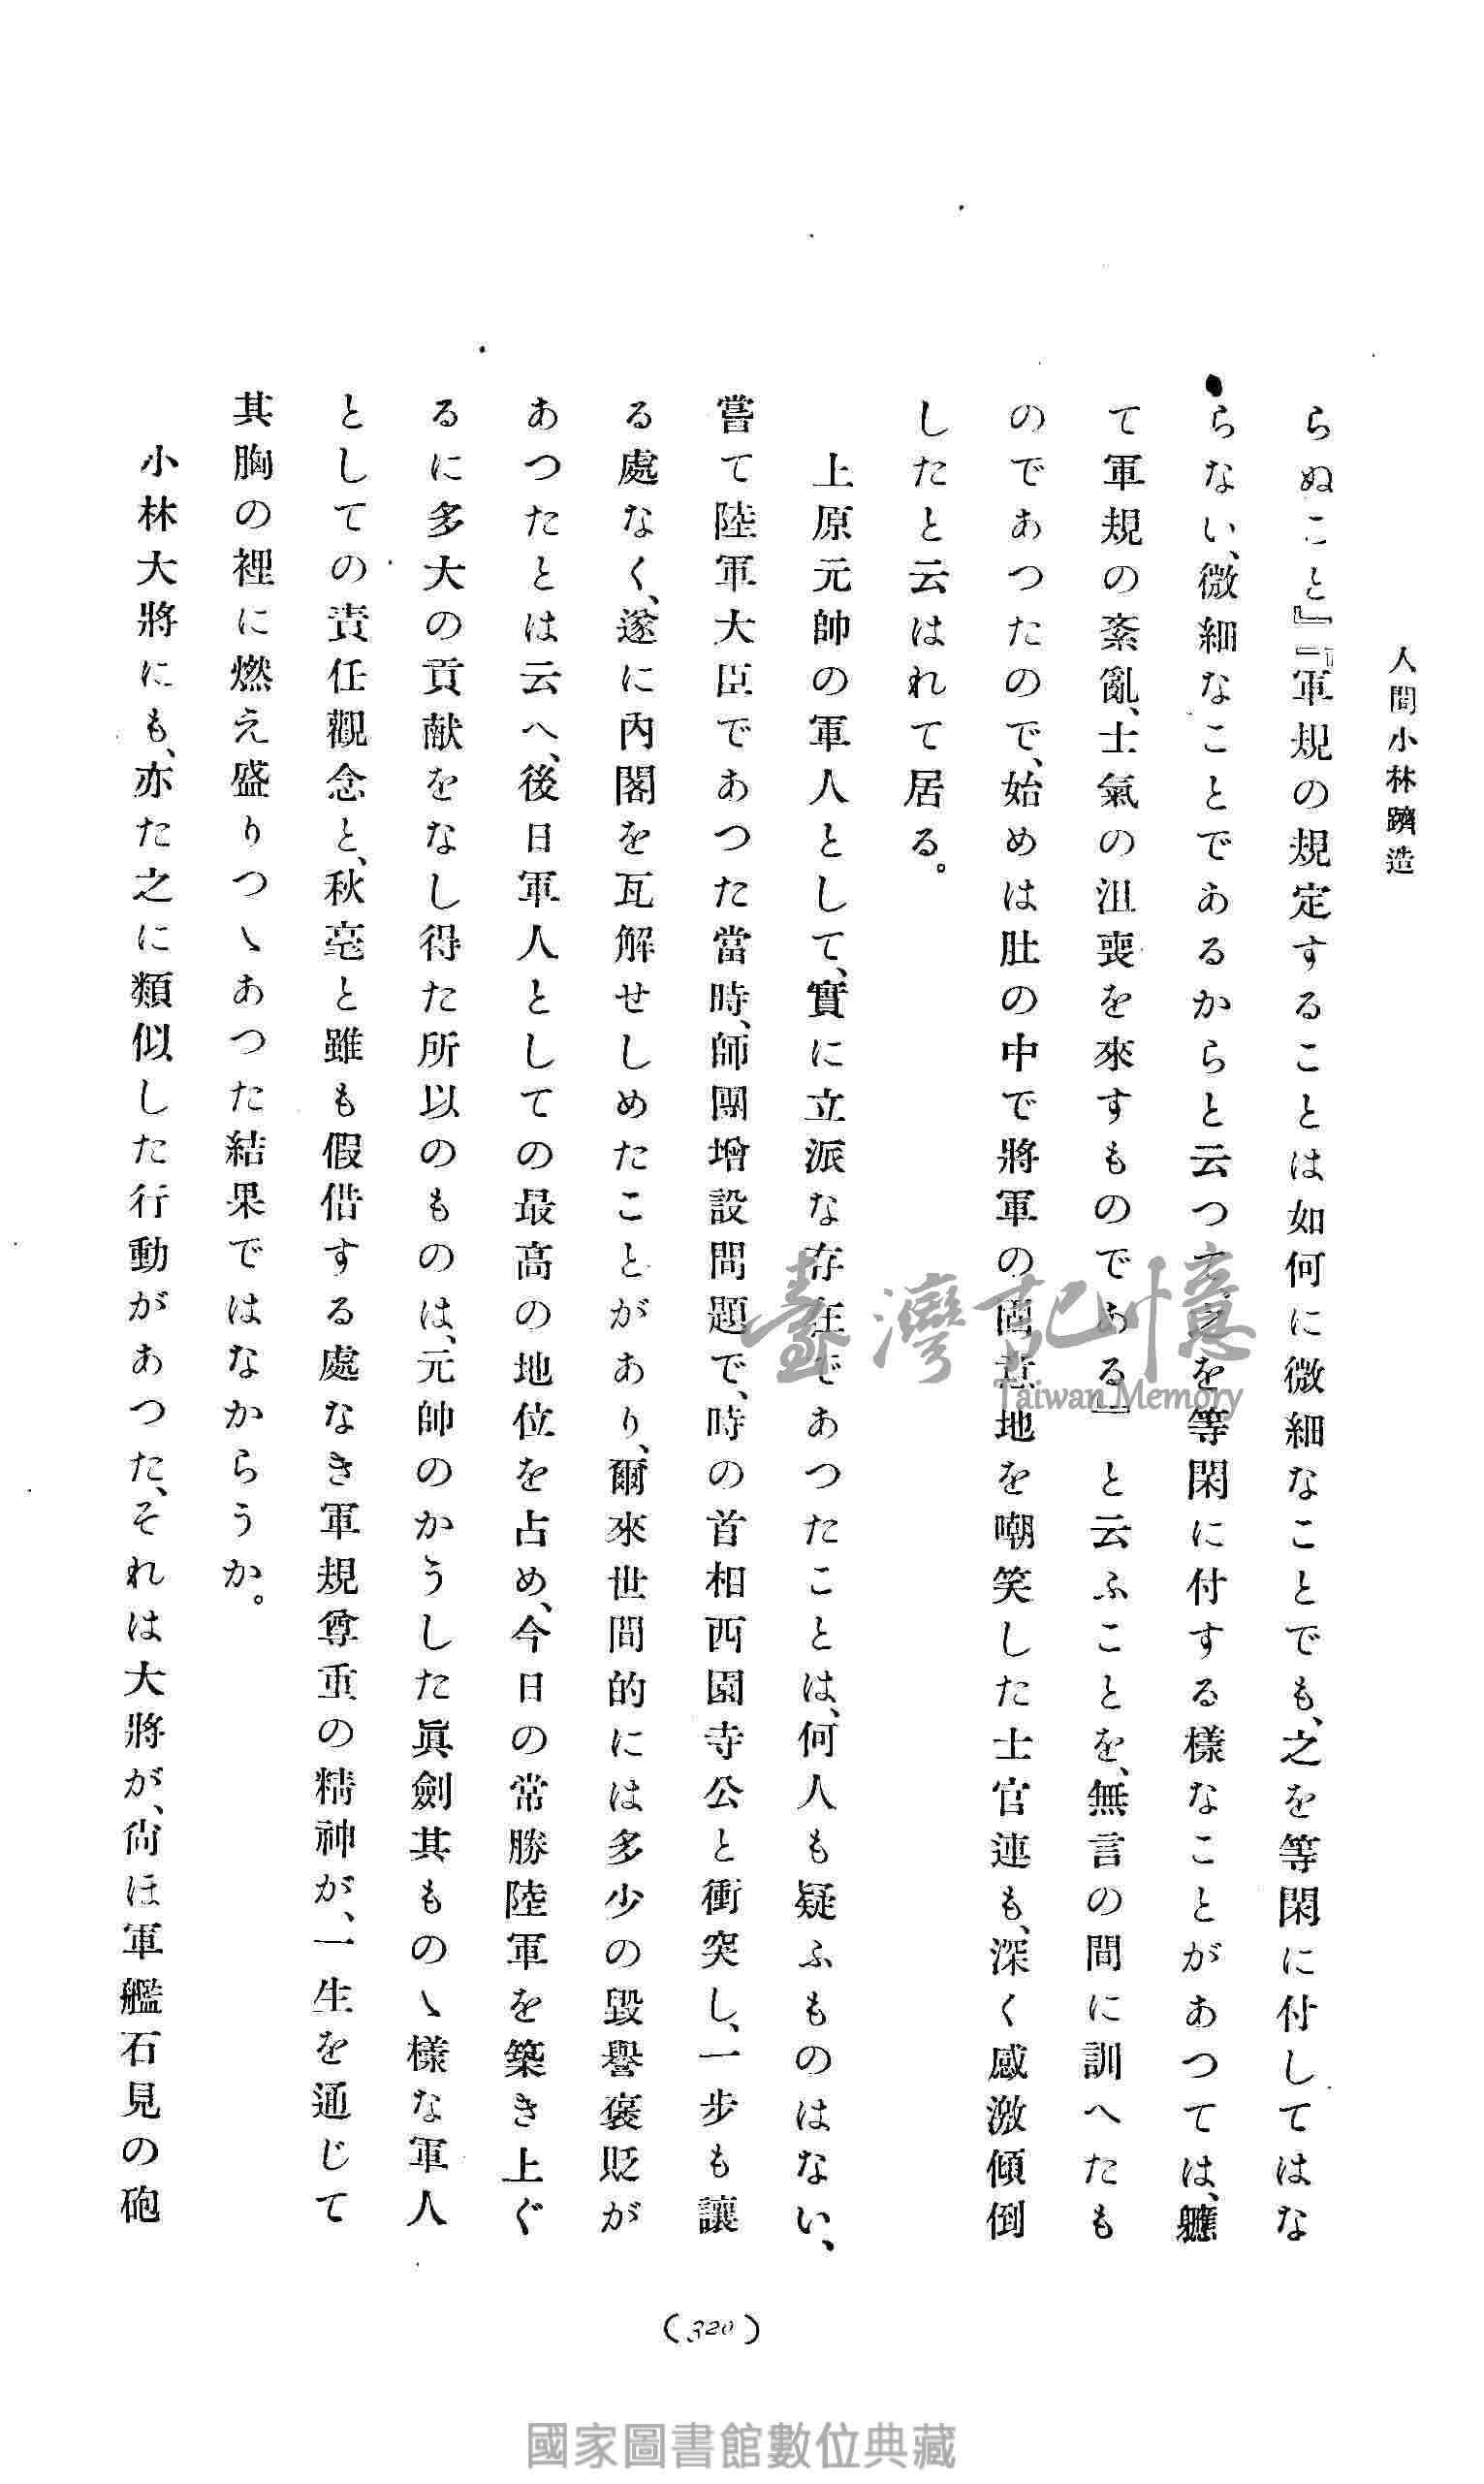 人間小林躋造
らぬこと』『軍規の規定することは如何に微細なことでも、之を等閑に付してはな
らない、微細なことであるからと云つて之を等閑に付する樣なことがあつては、軈
て軍規の紊亂、士氣の沮喪を來すものである』と云ふことを、無言の間に訓へたも
のであつたので、始めは肚の中で將軍の固意地を嘲笑した士官連も、深く感激傾倒
したと云はれて居る。
上原元帥の軍人として、實に立派な存在であつたことは、何人も疑ふものはない、
嘗て陸軍大臣であつた當時、師團增設問題で、時の首相西園寺公と衝突し、一步も讓
る處なく、遂に內閣を瓦解せしめたことがあり、爾來世間的には多少の毀譽褒貶が
あつたとは云へ、後日軍人としての最高の地位を占め、今日の常勝陸軍を築き上ぐ
るに多大の貢献をなし得た所以のものは、元帥のかうした眞劍其ものゝ樣な軍人
としての責任觀念と、秋毫と雖も假借する處なき軍規尊重の精神が、一生を通じて
其胸の裡に燃え盛りつゝあつた結果ではなからうか。
小林大將にも、亦た之に類似した行動があつた、それは大將が、尙ほ軍艦石見の砲
(320)
臺灣記憶
Taiwan Memory
國家圖書館數位典藏